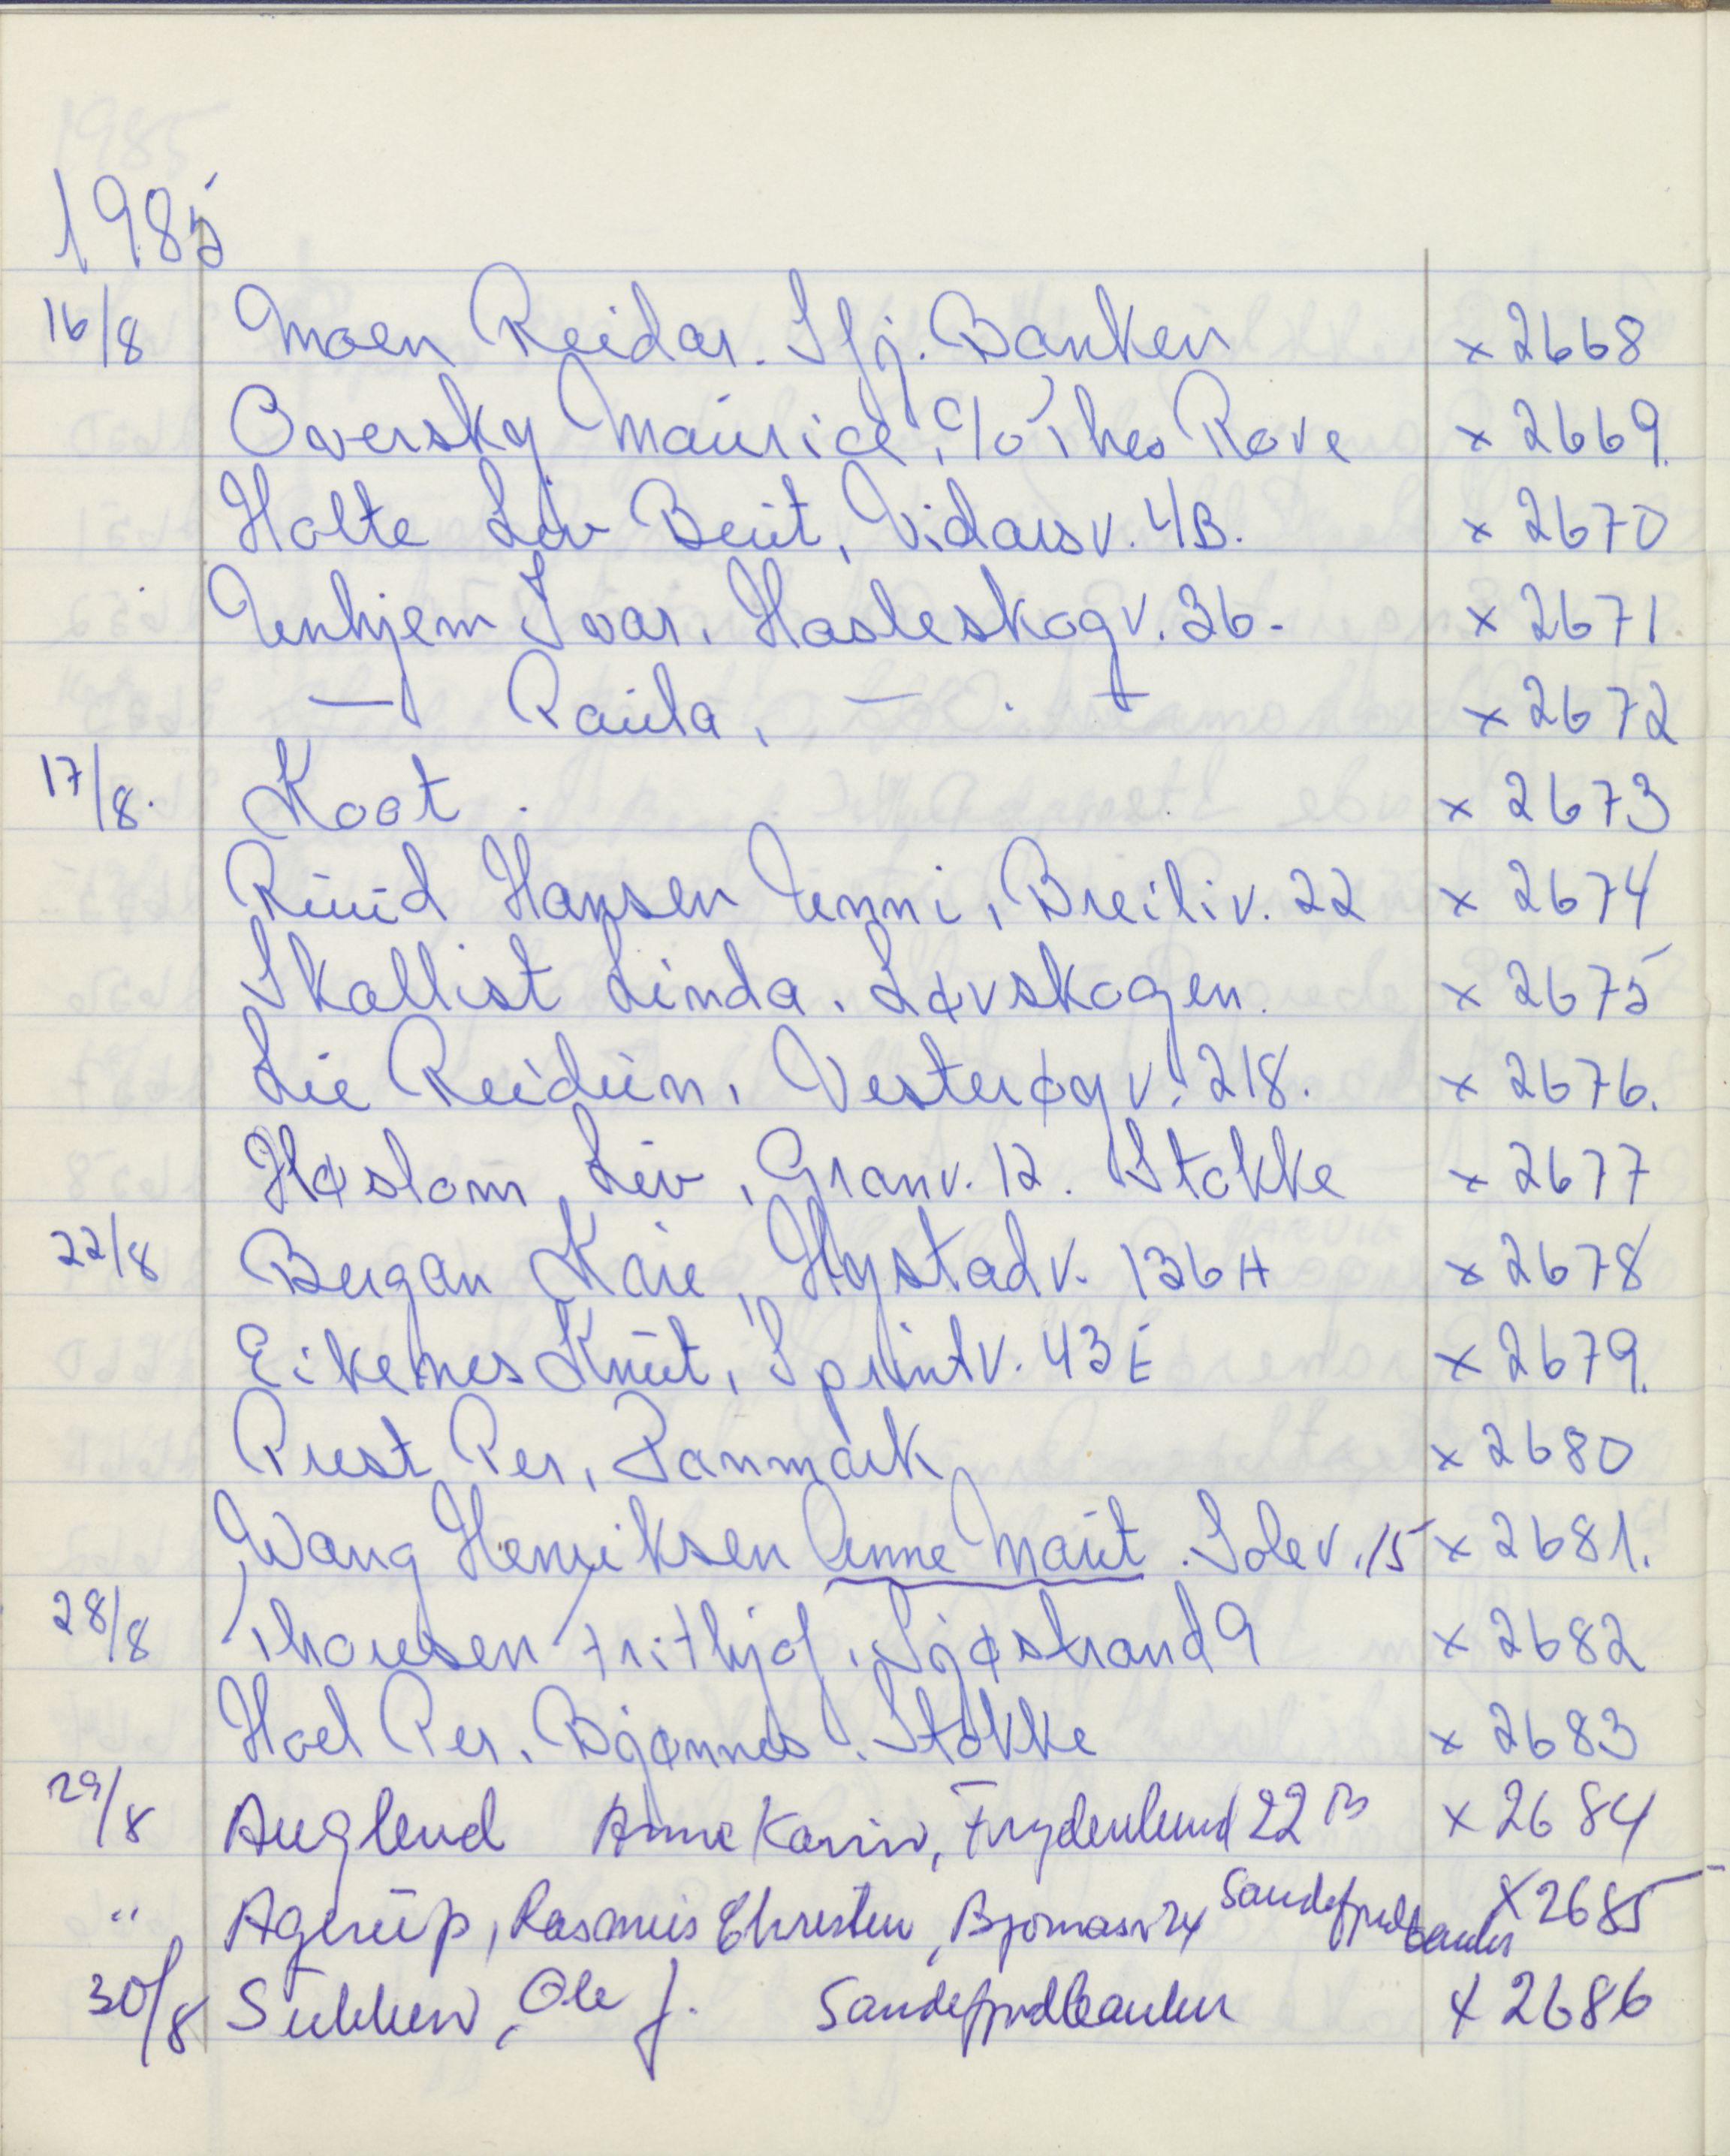 1985
16/8 Moen Reidar. Sfj. Banken x 2668
Oversky Maurice, c/o Thos Rove x 2669.
Holte Liv Berit, Vidarsv. 4B. x 2670
Unhjem Ivar. Hasleskogv. 36. x 2671
— Paula, — . — x 2672
17/8. Koot. x 2673
Ruud Hansen Unni, Breiliv. 22 x 2674
Skallist Linda. Løvskogen. x 2675
Lie Reidun, Vesterøyv. 218. x 2676.
Høslom Liv, Granv. 12. Stokke x 2677
22/8 Bergan Kåre, Nystadv. 136 H x 2678
Eikenes Knut, Sprintv. 43 E x 2679.
Prest Per, Danmark x 2680
Wang Henriksen Anne Marit. Solev. 15 x 2681.
28/8 Thoresen Frithjof, Sjøstrand 9 x 2682
Hoel Per. Bjønnes. Stokke x 2683
29/8 Auglend Anne Karin, Frydenlund 22 B x 2684
" Agerup, Rasmus Christen, Sandefjordbanken x 2685
30/8 Ole J. Sandefjordbanken x 2686